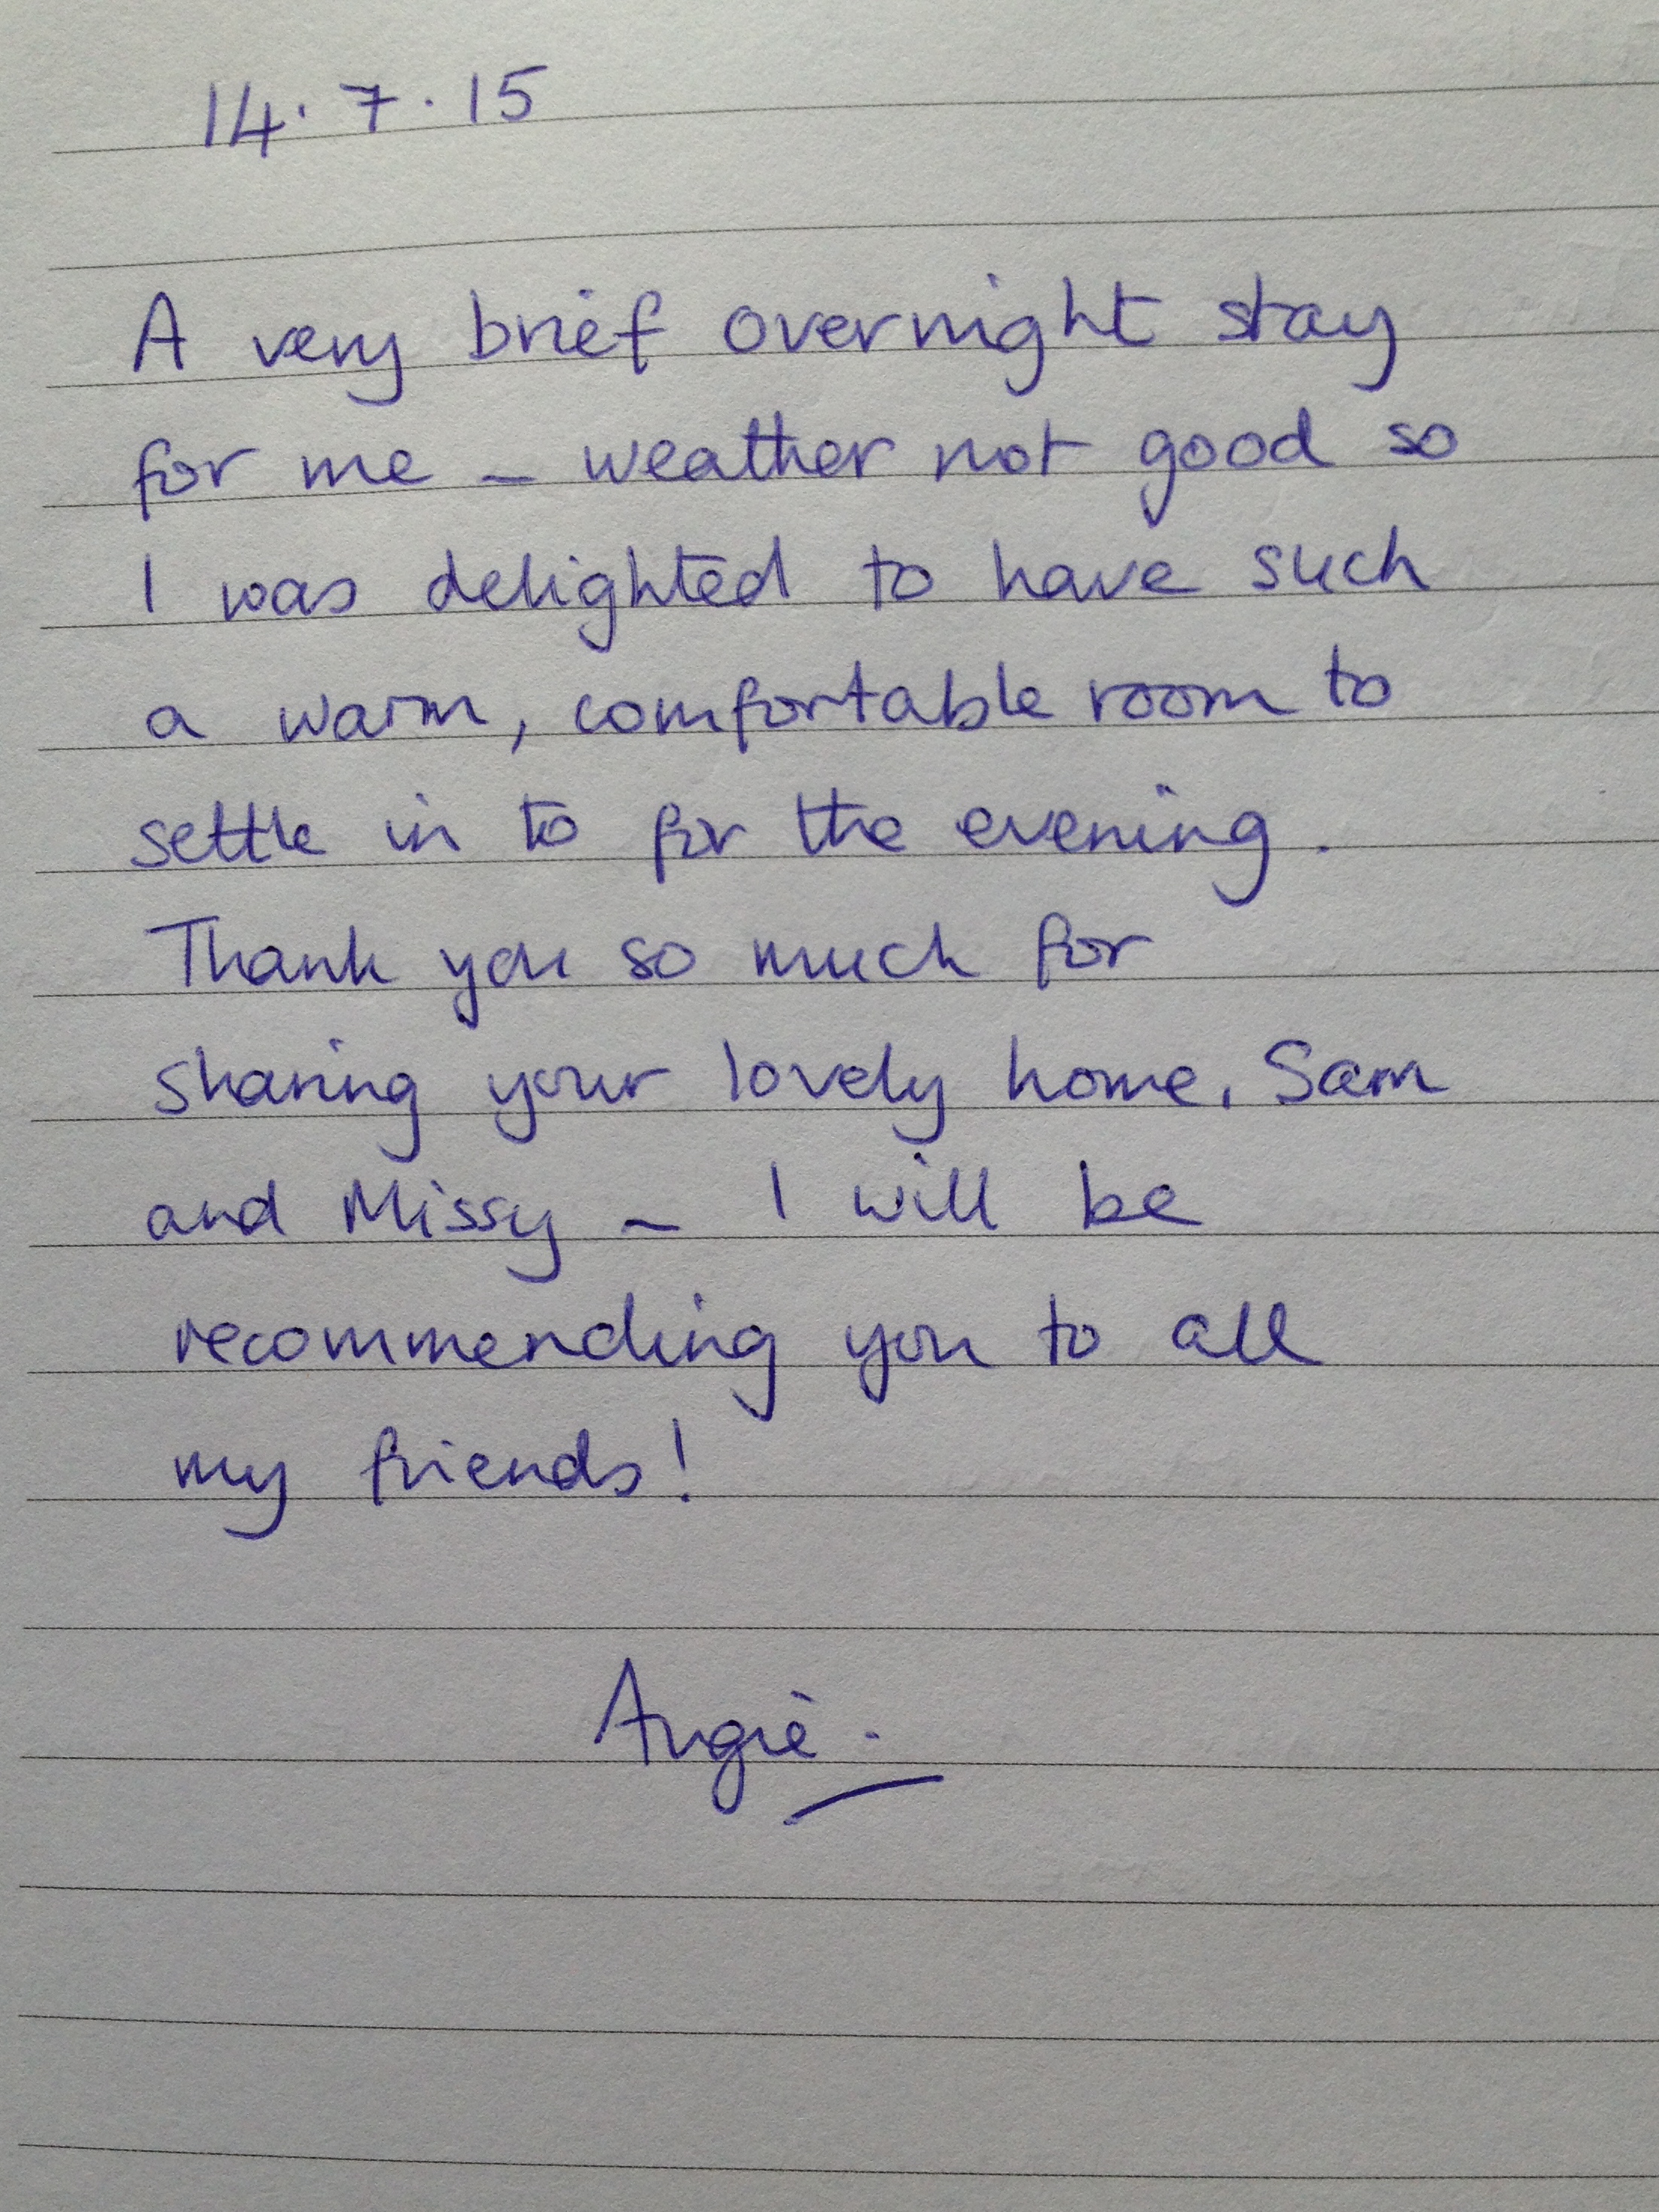 14.7.15
A very brief overnight stay
for me – weather not good so
I was delighted to have such
a warm, comfortable room to
settle in to for the evening.
Thank you so much for
sharing your lovely home, Sam
and Missy – I will be
recommending you to all
my friends!
Angie.